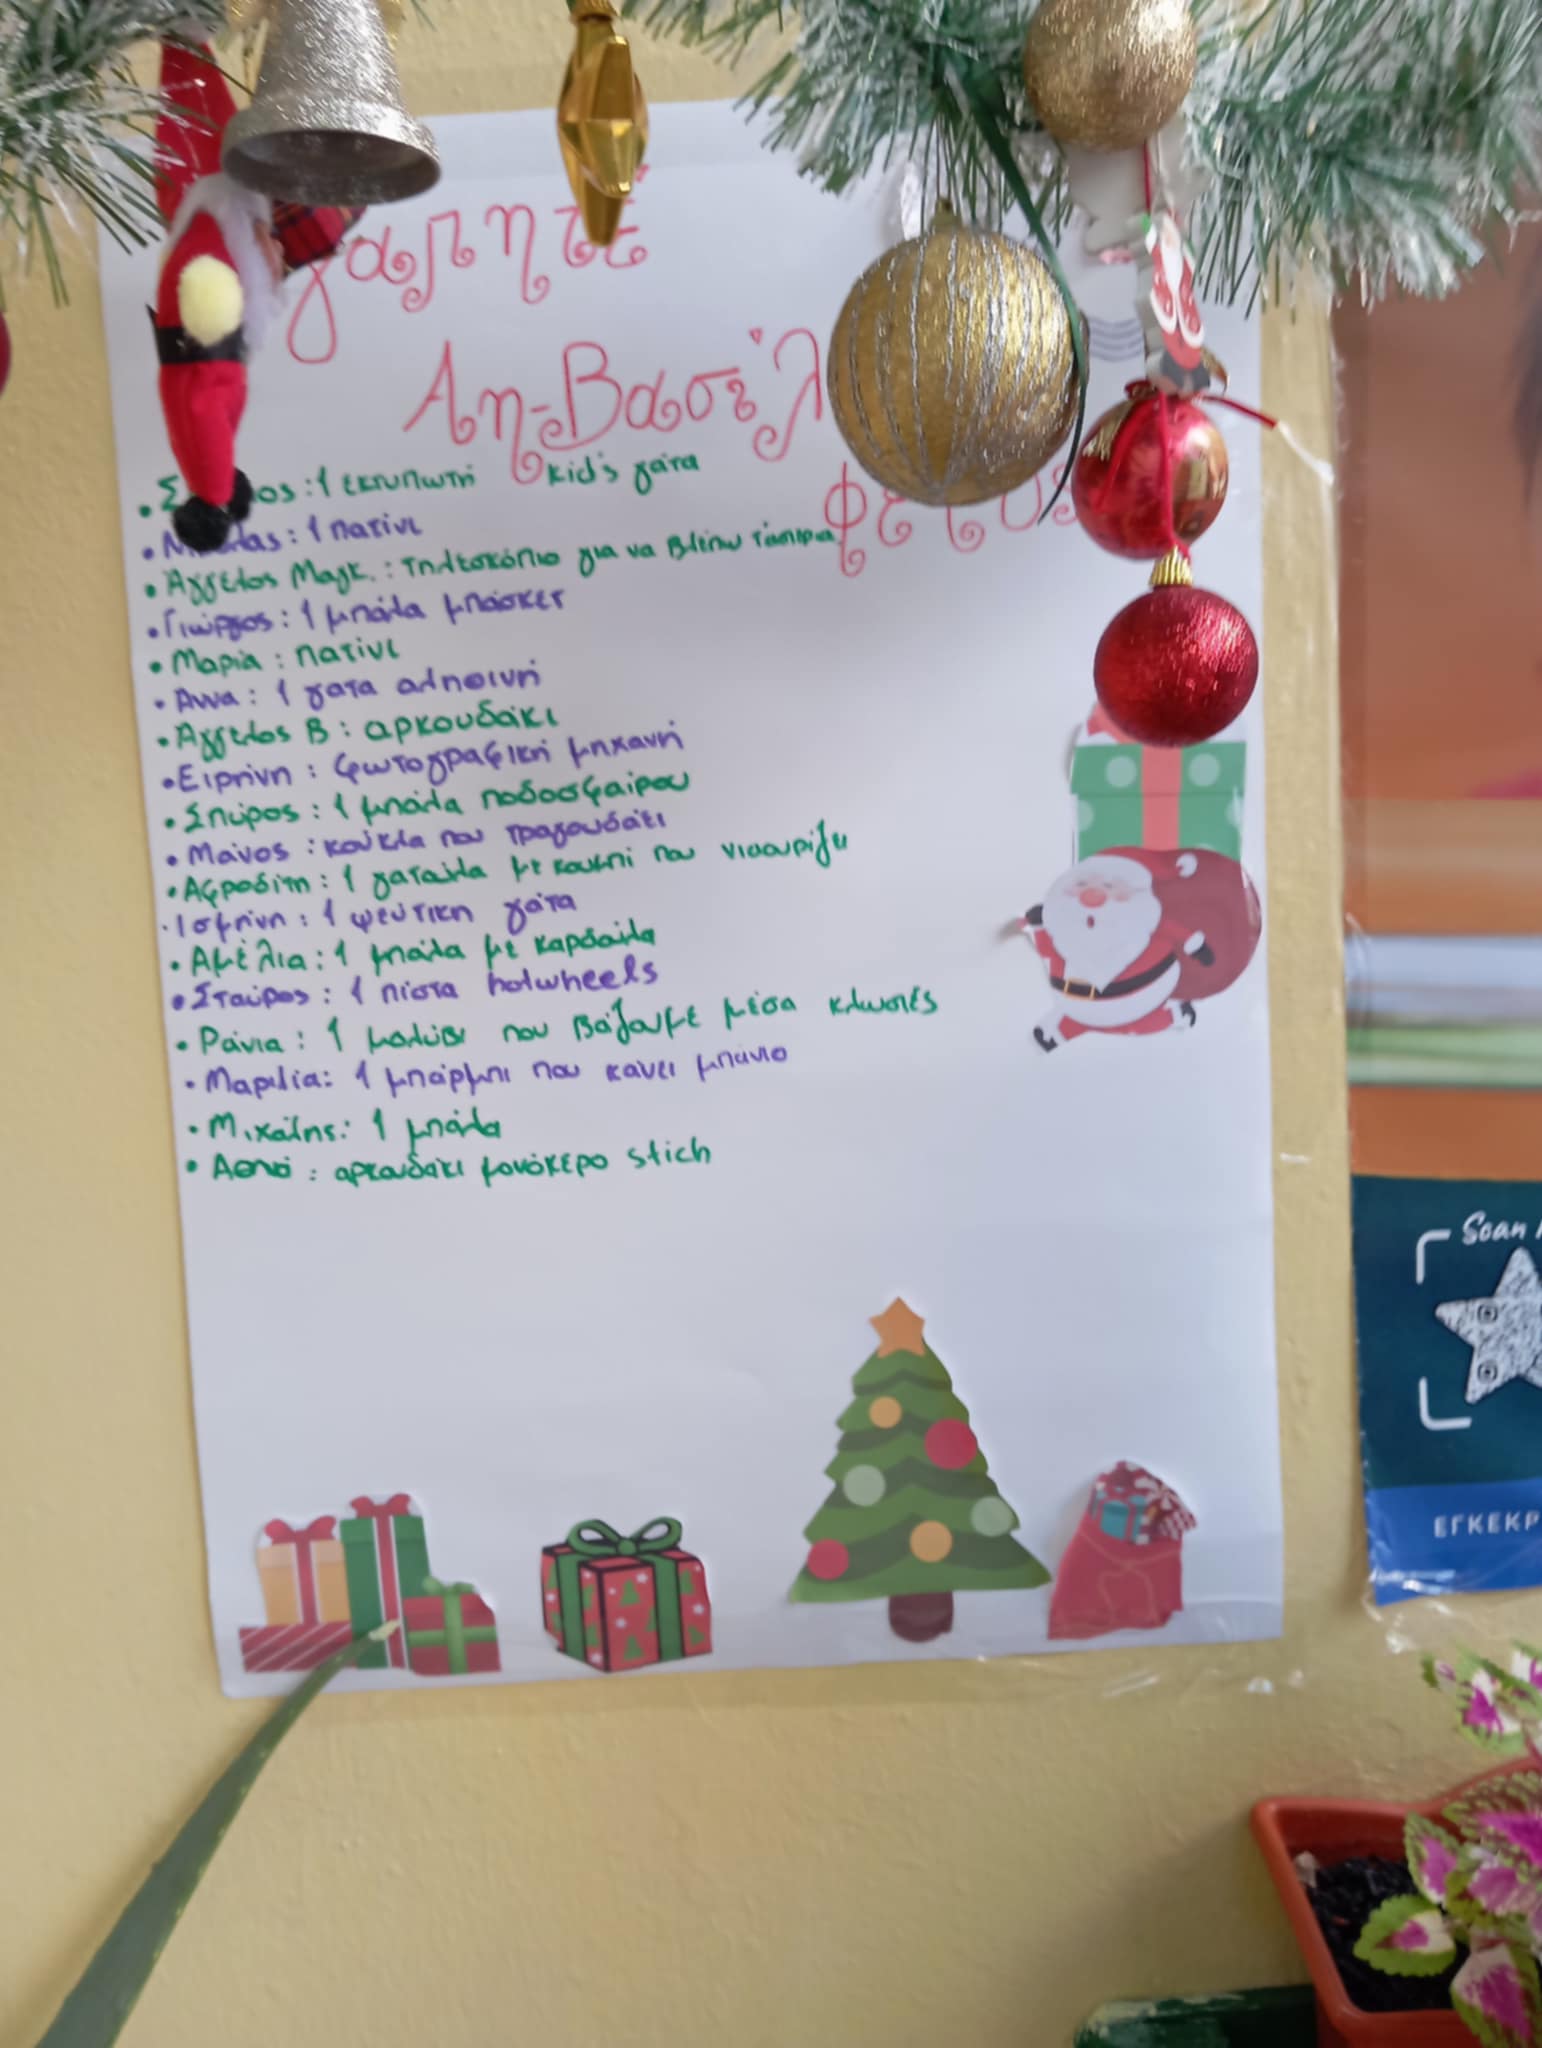 γαπητέ
Αη-Βασίλ
φέτος
• Σ ος : 1 εκτυπωτή kid's γάτα
• Μ λας : 1 πατίνι
• Άγγελος Μαγκ. : τηλεσκόπιο για να βλέπω τ'άστρα
• Γιώργος : 1 μπάλα μπάσκετ
• Μαρία : πατίνι
• Άννα : 1 γατα αληθινή
• Άγγελος Β : αρκουδάκι
• Ειρήνη : φωτογραφική μηχανή
• Σπύρος : 1 μπάλα ποδοσφαίρου
• Μάνος : κούκλα που τραγουδάει
• Αφροδίτη : 1 γατούλα με κουμπί που νιαουρίζει
• Ισμήνη : 1 ψεύτικη γάτα
• Αμέλια : 1 μπάλα με καρδούλα
• Σταύρος : 1 πίστα hotwheels
• Ράνια : 1 μολύβι που βάζουμε μέσα κλωστές
• Μαριλία : 1 μπάρμπι που κάνει μπάνιο
• Μιχάλης : 1 μπάλα
• : αρκουδάκι μονόκερο stich
Scan
ΕΓΚΕΚΡ